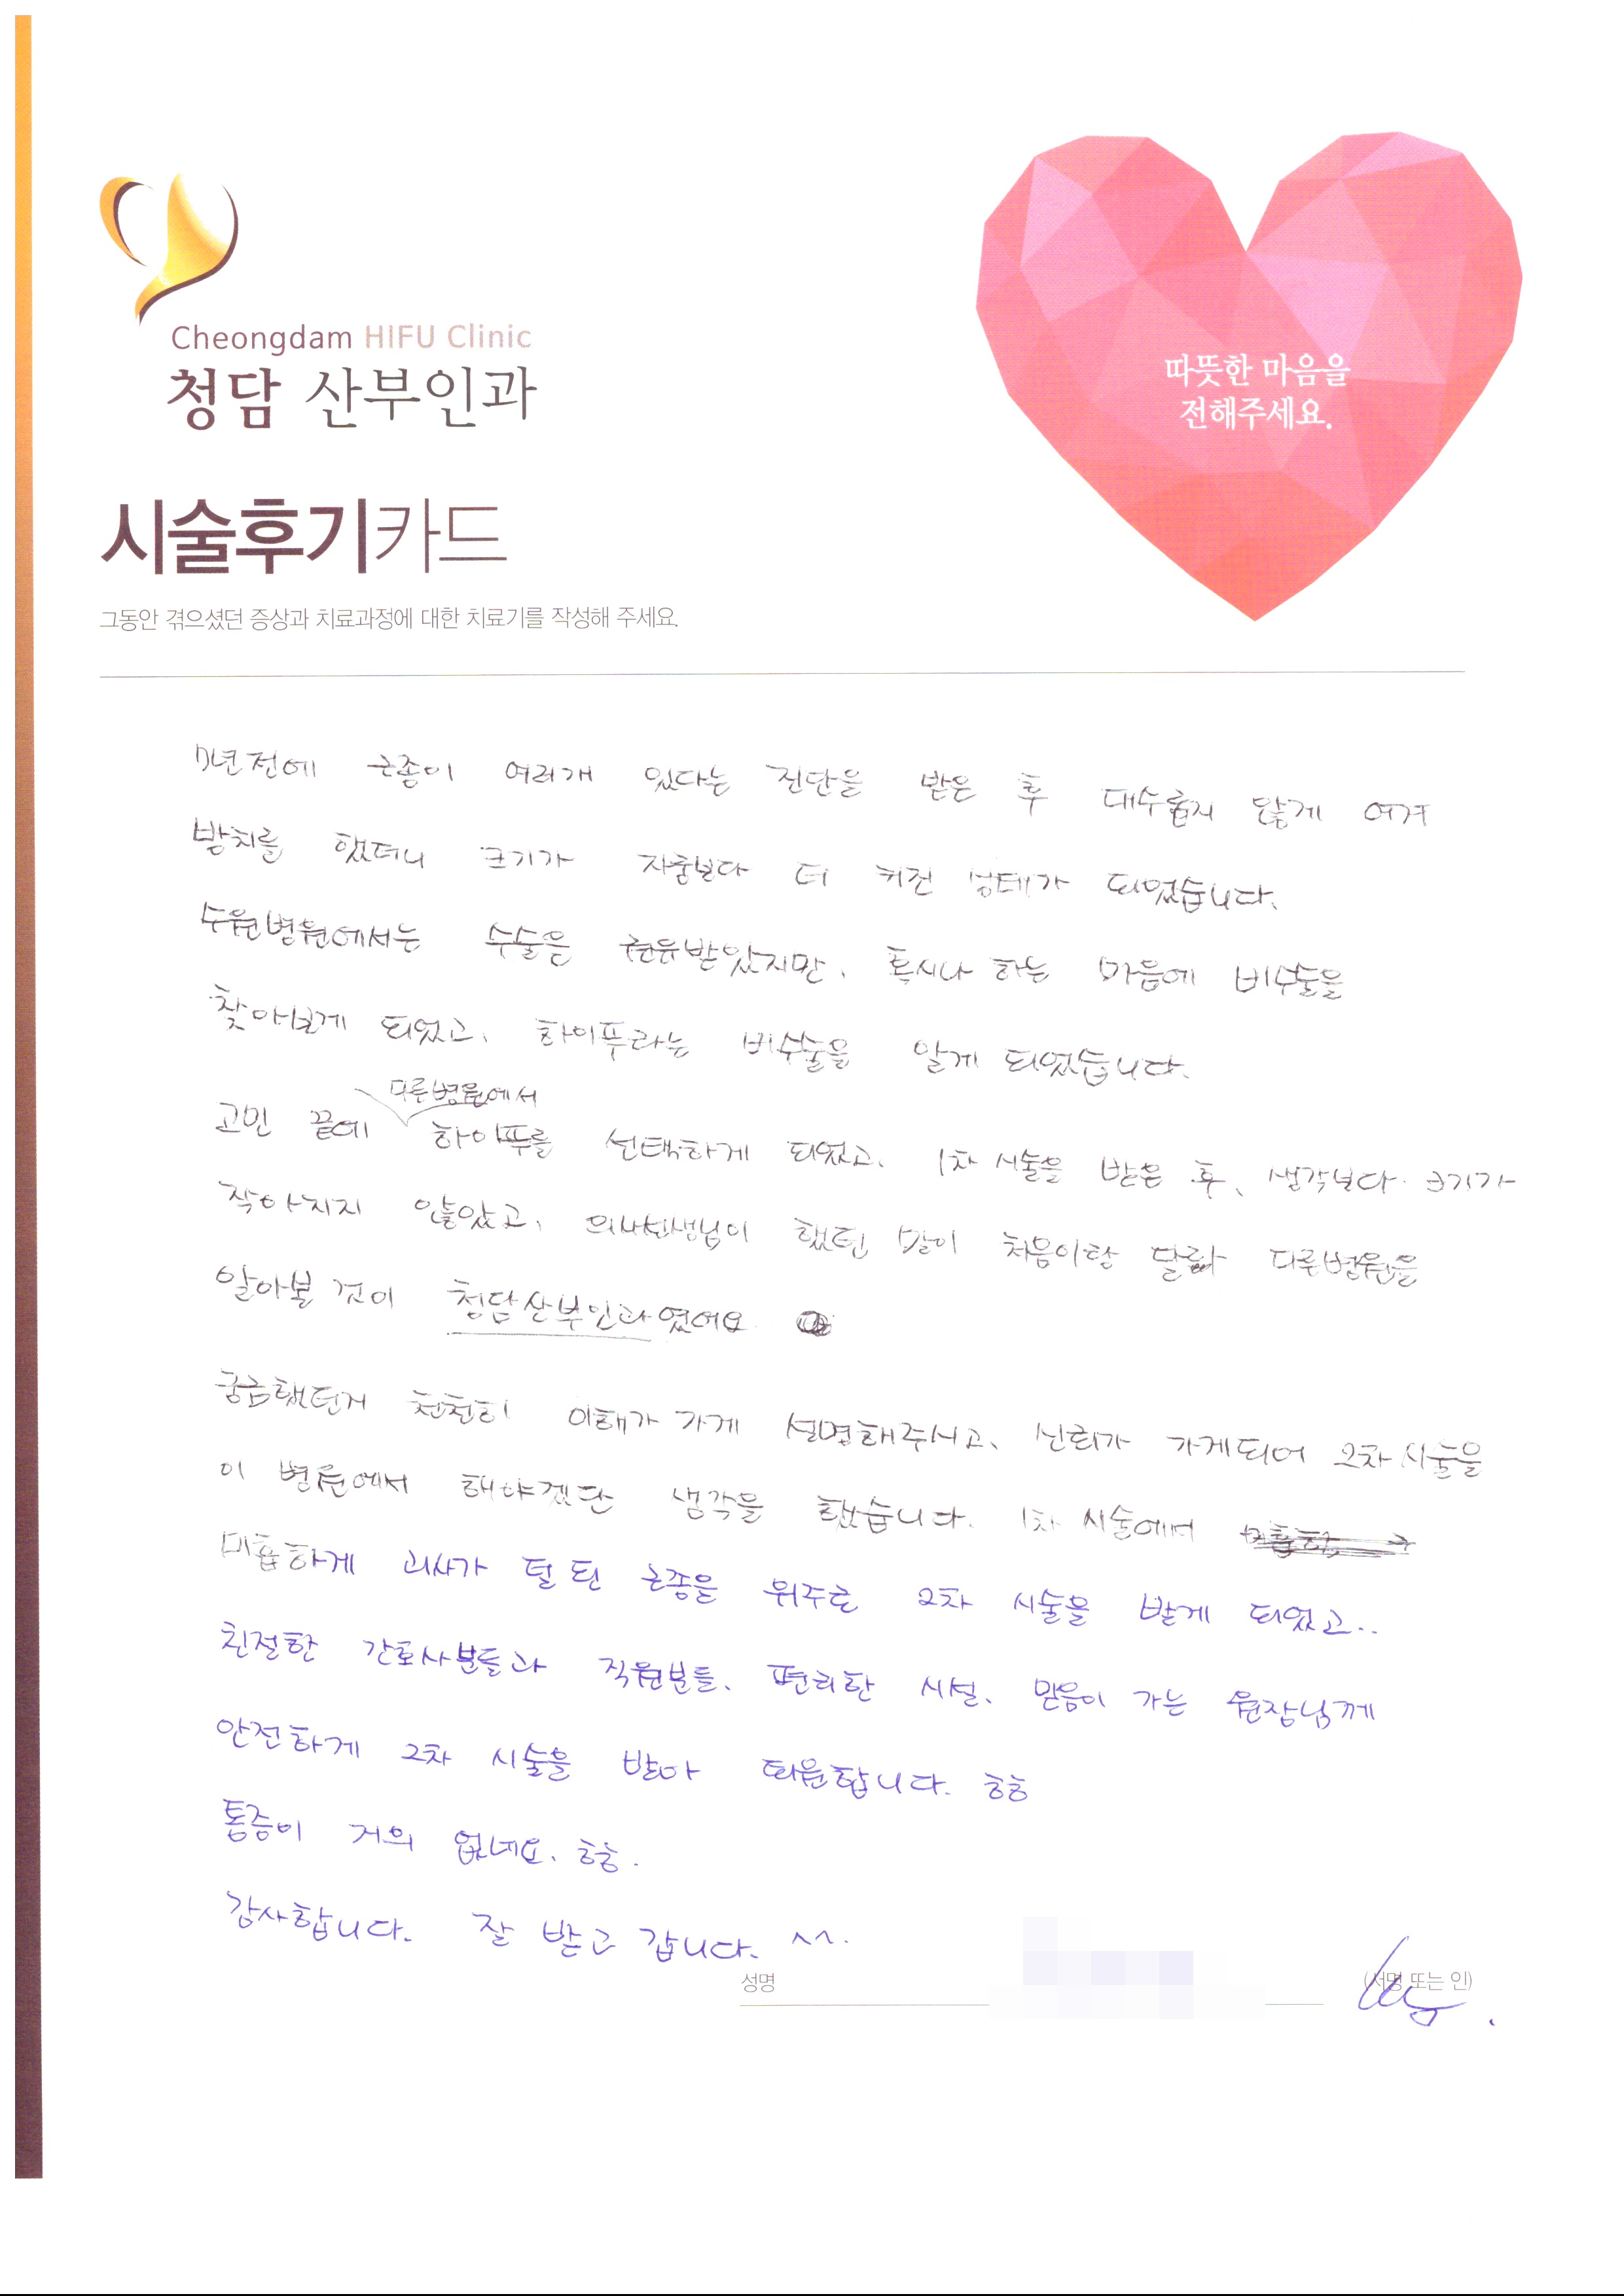 Cheongdam HIFU Clinic
청담 산부인과
따뜻한 마음을
전해주세요.
시술후기카드
그동안 겪으셨던 증상과 치료과정에 대한 치료기를 작성해 주세요.
7년전에 근종이 여러개 있다는 진단을 받은 후 대수롭지 않게 여겨
방치를 했더니 크기가 자궁보다 더 커진 상태가 되었습니다.
수원병원에서는 수술을 권유받았지만, 혹시나 하는 마음에 비수술을
찾아보게 되었고, 하이푸라는 비수술을 알게 되었습니다.
다른병원에서
고민 끝에 하이푸를 선택하게 되었고, 1차 시술을 받은 후, 생각보다 크기가
작아지지 않았고, 의사선생님이 했던 말이 처음이랑 달라 다른병원을
알아본 것이 청담산부인과였어요
궁금했던거 천천히 이해가 가게 설명해주시고, 신뢰가 가게되어 2차 시술을
이 병원에서 해야겠단 생각을 했습니다. 1차 시술에서
미흡하게 괴사가 덜 된 근종을 위주로 2차 시술을 받게 되었고..
친절한 간호사분들과 직원분들, 편리한 시설, 믿음이 가는 원장님께
안전하게 2차 시술을 받아 퇴원합니다. ㅎㅎ
통증이 거의 없네요. ㅎㅎ.
감사합니다. 잘 받고 갑니다. ^^.
성명
(서명 또는 인)